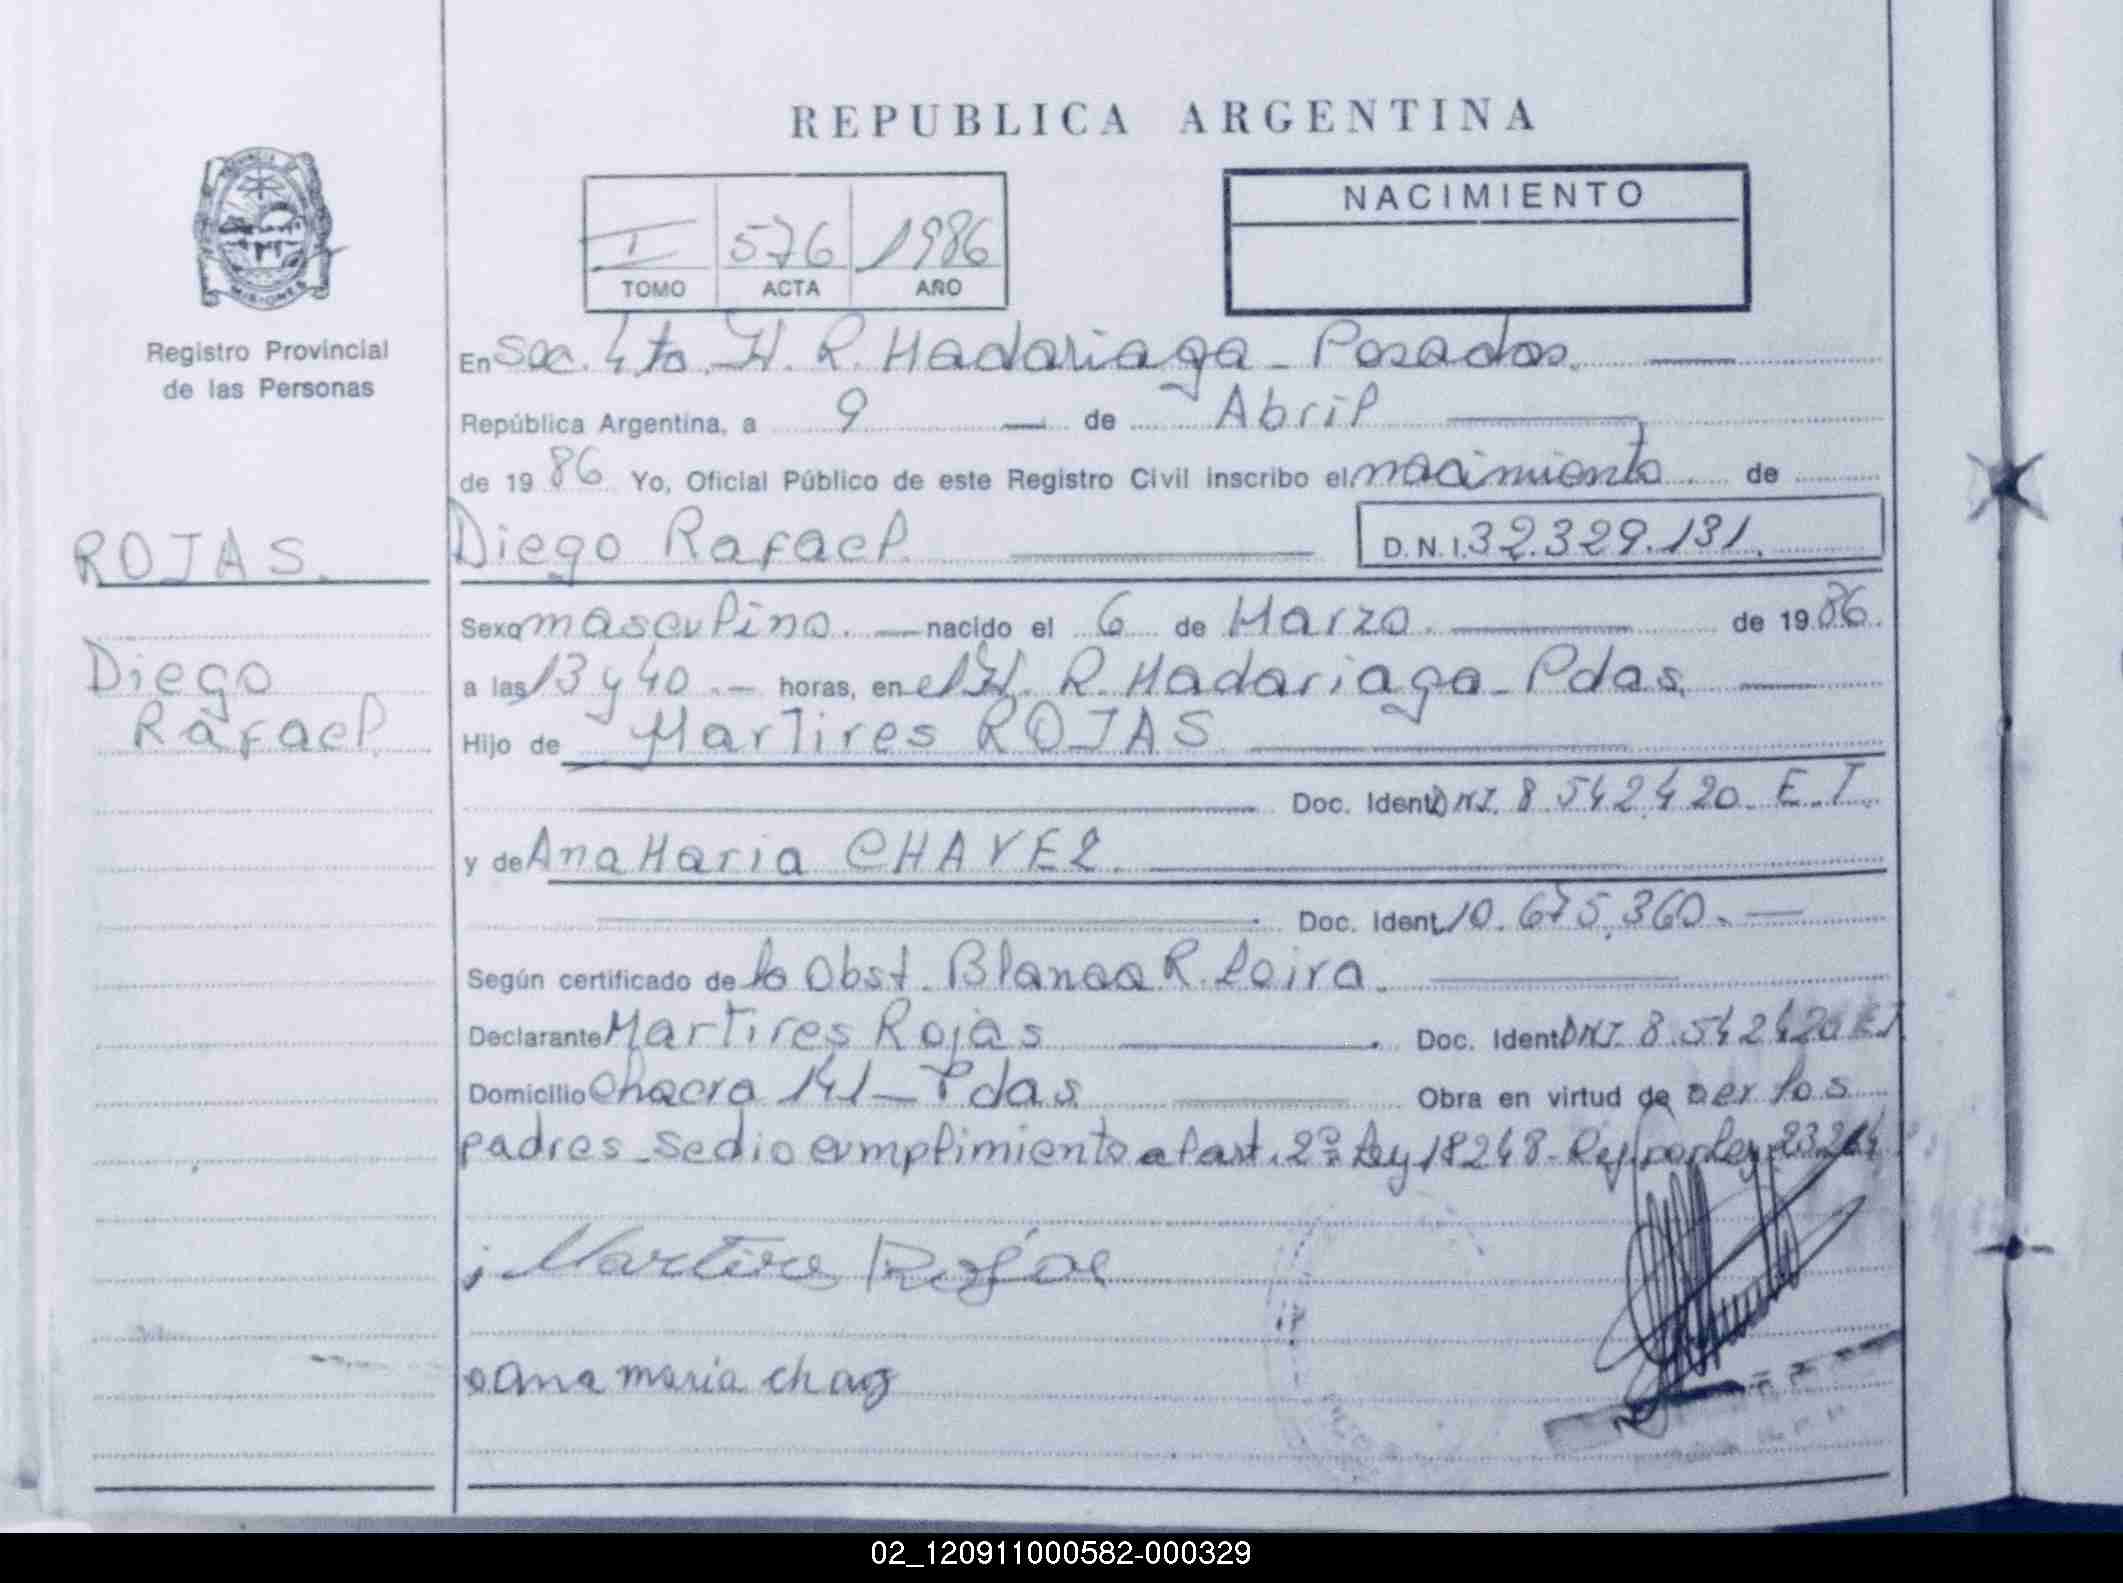 REPUBLICA ARGENTINA
NACIMIENTO
I 576 1986
TOMO ACTA AÑO
MISIONES
Registro Provincial
de las Personas
En Sec. 4ta. H. R. Madariaga - Posadas.
República Argentina, a 9 de Abril
de 1986 Yo, Oficial Público de este Registro Civil inscribo el nacimiento de
ROJAS.
Diego Rafael
Diego Rafael. D.N.I. 32.329.131.
Sexo masculino. nacido el 6 de Marzo. de 1986.
a las 13 y 40.- horas, en el H. R. Madariaga - Pdas.
Hijo de Martires ROJAS
Doc. Ident. DNI. 8.542.420. E.T.
y de Ana Maria CHAVEZ.
Doc. Ident. 10.675.360.-
Según certificado de la Obst. Blanca R. Leira.
Declarante Martires Rojas Doc. Ident. DNI. 8.542420 E.T.
Domicilio Chacra 141 - Pdas Obra en virtud de ser los
padres - se dio cumplimiento al art. 2º Ley 18248 - Ref. por Ley 23264
Martires Rojas
ana maria
02_120911000582-000329